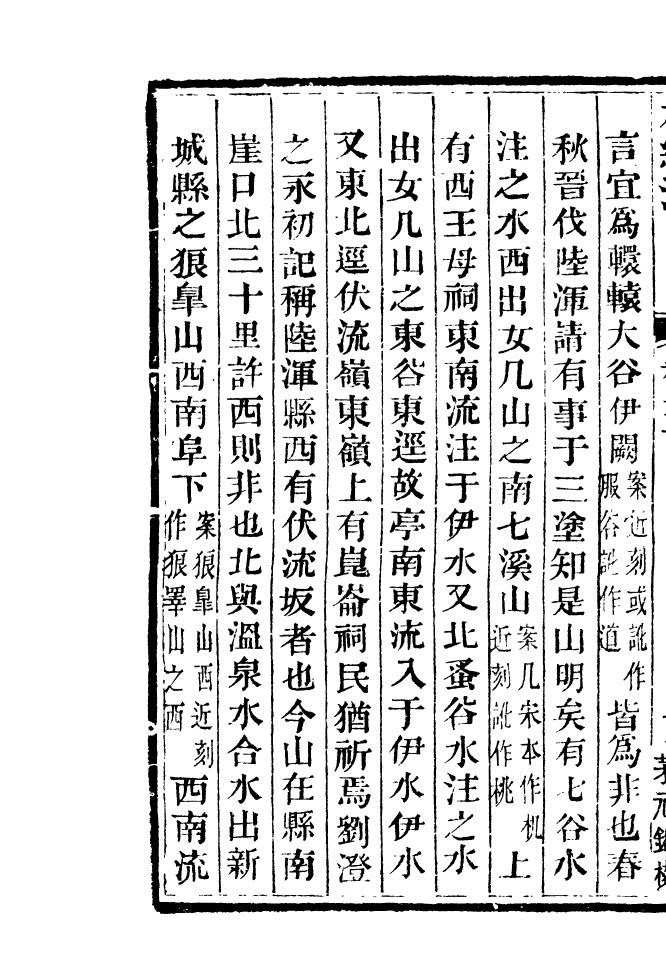 言宜爲轘轅大谷伊闕案近刻或訛作服谷訛作道皆爲非也春
秋晉伐陸渾請有事于三塗知是山明矣有七谷水
注之水西出女几山之南七溪山案几宋本作机近刻訛作桃上
有西王母祠東南流注于伊水又北蚤谷水注之水
出女几山之東谷東逕故亭南東流入于伊水伊水
又東北逕伏流嶺東嶺上有崑崙祠民猶祈焉劉澄
之永初記稱陸渾縣西有伏流坂者也今山在縣南
崖口北三十里許西則非也北與溫泉水合水出新
城縣之狼臯山西南阜下案狼臯山西近刻作狼睪山之西西南流